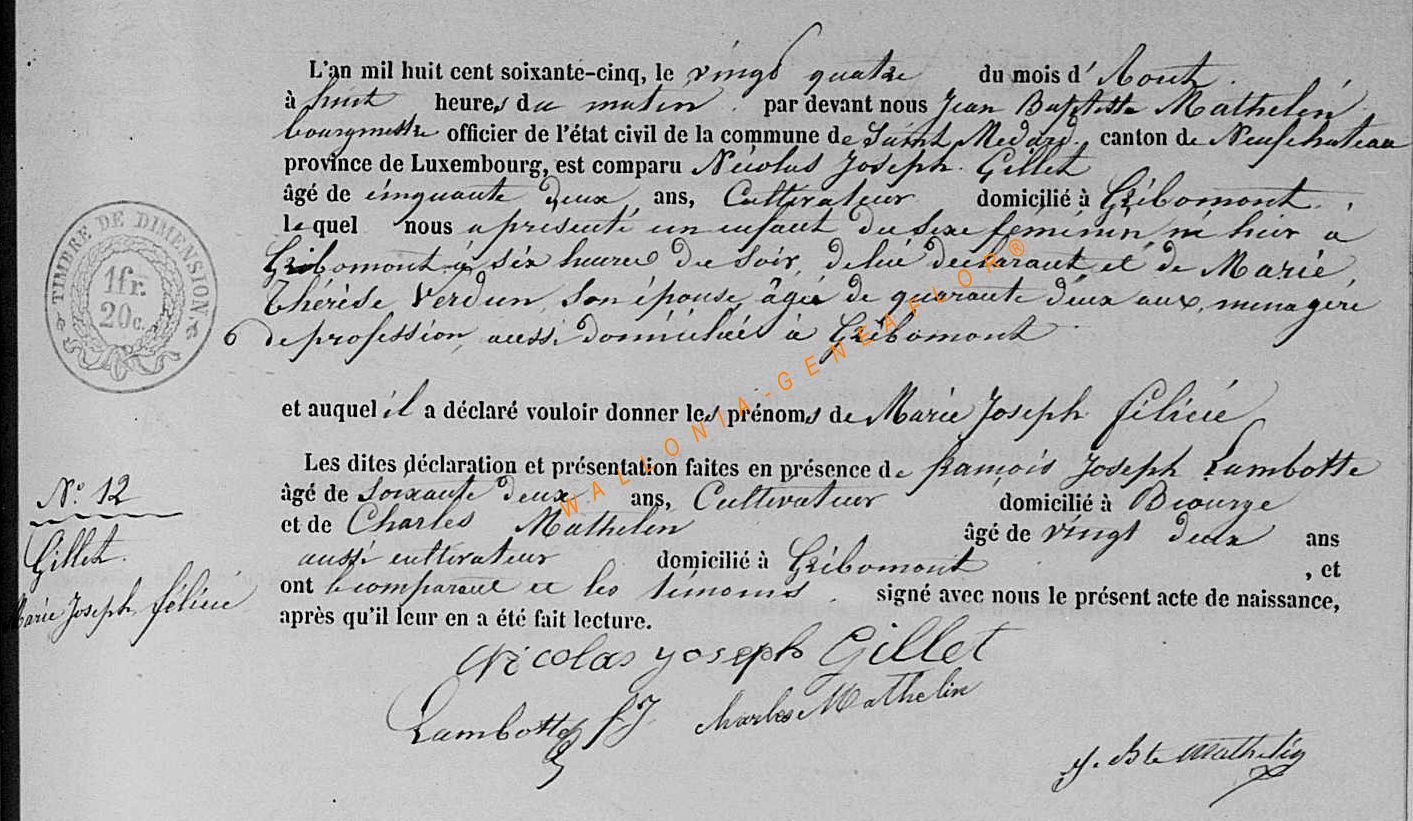 L'an mil huit cent soixante-cinq, le vingt quatre du mois d'Aout.
à huit heures du matin par devant nous Jean Baptiste Mathelin
bourgmestre officier de l'état civil de la commune de Saint Médard, canton de Neufchateau
province de Luxembourg, est comparu Nicolas Joseph Gillet
âgé de cinquante deux ans, Cultivateur domicilié à Gribomont,
lequel nous a présenté un enfant du sexe féminin, né hier à
Gribomont à six heures du soir, de lui déclarant, et de Marie
Thérèse Verdun, son épouse, âgée de quarante deux ans, ménagère
de profession, aussi domiciliée à Gribomont
et auquel il a déclaré vouloir donner les prénoms de Marie Joseph félicie
Les dites déclaration et présentation faites en présence de françois Joseph Lambotte
âgé de soixante deux ans, Cultivateur domicilié à Biourge
et de Charles Mathelin âgé de vingt deux ans
aussi cultivateur domicilié à Gribomont, et
ont le comparant et les témoins signé avec nous le présent acte de naissance,
après qu'il leur en a été fait lecture.
Nicolas joseph Gillet
Lambotte f J charles Mathelin
J. Bte Mathelin
TIMBRE DE DIMENSION
1fr.
20c.
6
N° 12
Gillet
Marie Joseph félicie
WALLONIA-GENEAFLOR®